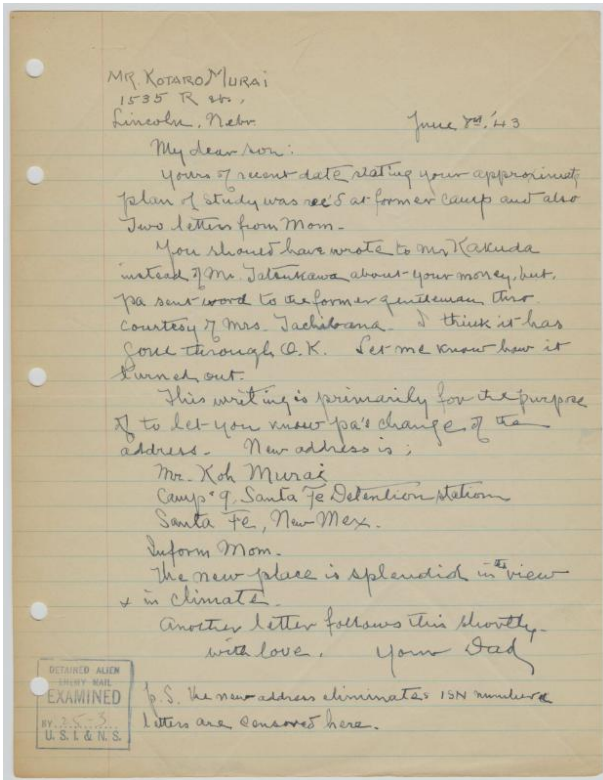 MR. KOTARO MURAI
1535 R str.,
Lincoln, Nebr.
June 3rd, '43
My dear son:
Yours of recent date stating your approximate
plan of study was rec'd at former camp and also
two letters from Mom-
You should have wrote to Mr. Kakuda
instead of Mr. Tatsukawa about your money, but,
pa sent word to the former gentleman thro
courtesy of Mrs. Tachibana. I think it has
gone through O.K. Let me know how it
turned out.
This writing is primarily for the purpose
of to let you know pa's change of the
address. New address is;
Mr. Koh Murai
Camp 9, Santa Fe Detention station
Santa Fe, New Mex.
Inform Mom-
The new place is splendid in the view
& in climate.
Another letter follows this shortly-
with love. Your Dad
P.S. The new address eliminates ISN number &
letters are censored here.
DETAINED ALIEN
ENEMY MAIL
EXAMINED
BY
U.S.I. & N.S.